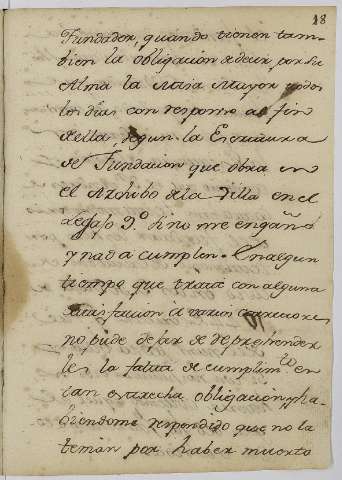 18
Fundador, quando tienen tam-
bien la obligacion de decir por su
Alma la Misa Mayor todos
los dias con responso al fin
de ella, segun la Escriptura
de Fundacion que obra en
el Archibo de la Villa en el
Legajo 9.º sino me engaño
y nada cumplen. En algun
tiempo que traté con alguna
satisfacion á varios
no pude dejar de reprehender
les la falta de cumplim.to en
tan estrecha obligacion, y ha-
biendome respondido que no la
tenian por haber muerto